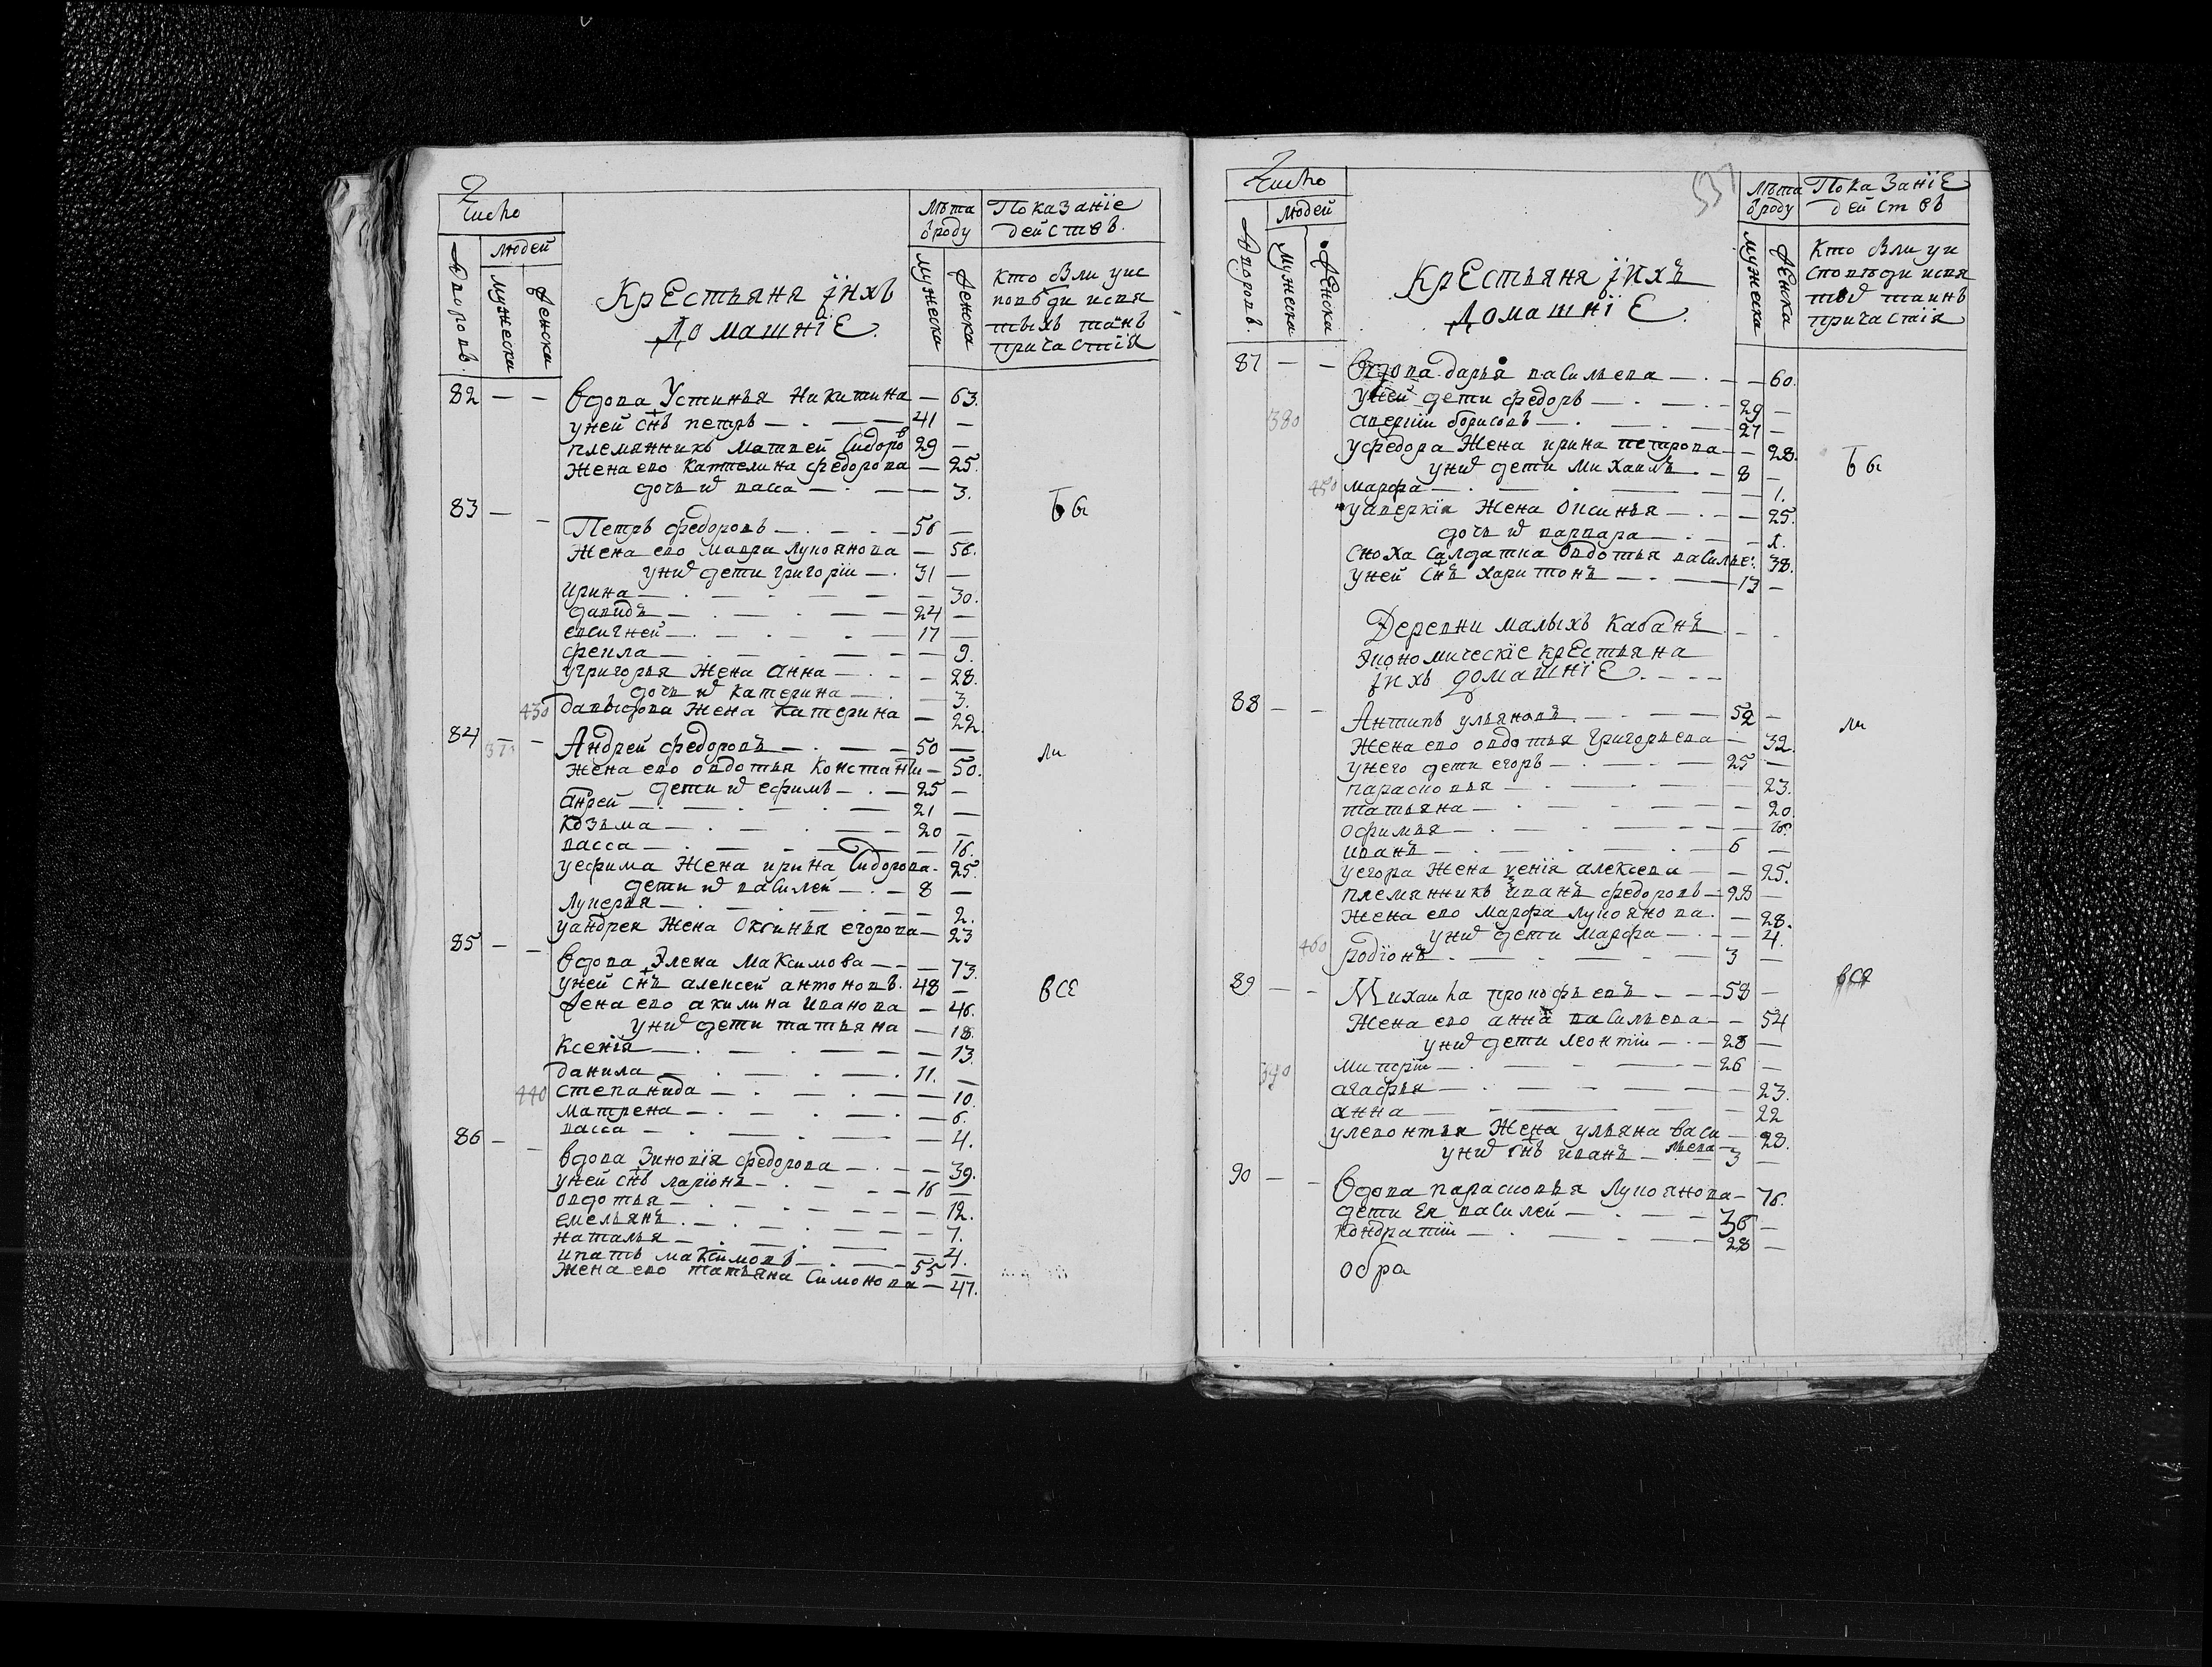 Число
Лѣта
ѿроду
Показаніе
действъ.
Дворовъ.
людей
мужеска
женска
мужеска
женска
Кто былъ уис
повѣди исвя
тыхъ таинъ
причастія
Крестьяня їихъ
домашнїе
82 — — вдова Устинья Никитина — 63.
уней снъ петръ — 41 —
племянникъ матвей Сидоровъ 29 —
жена ево кателина федорова — 25.
дочь их васса — — 3.
83 — — Петръ федоровъ — 56 —
жена ево мавра лукоянова — 56.
уних дети григории — 31 —
ирина — — 30.
давидъ — 24 —
евсигней — 17 —
фекла — — 9.
угригорья жена анна — — 28.
дочь их катерина — — 3.
430 давыдова жена катерина — 22.
84 — — Андрей федоровъ — 50 —
жена ево овдотья константи — 50.
дети их ефимъ — 25 —
анрей — 21 —
козьма — 20 —
васса — — 16.
уефима жена ирина Сидорова — 25.
дети их василей — 8 —
лукерья — — 2.
уандрея жена оксинья егорова — 23
85 — — вдова Элена максимова — — 73.
уней снъ алексей антоновъ. 48 —
жена ево акилина иванова — 46.
уних дети татьяна — 18.
ксенія — — 13.
данила — 11. —
440 степанида — — 10.
матрена — — 6.
васса — — 4.
86 — — вдова зиновія федорова — — 39.
уней снъ ларіонъ — 16 —
овдотья — — 12.
емельянъ — 7.
наталья — — 4.
ипатъ максимовъ — 55 —
жена ево татьяна Симонова — 47.
бы
ли
все
Число
537
Лѣта
ѿроду
Показаніе
действъ
Дворовъ.
людей
мужеска
женска
мужеска
женска
Кто былъ уи
споведи исвя
тых таинъ
причастія
Крестьяня їихъ
домашнїе.
87 — — Вдова дарья васильева — — 60.
уней дети федоръ — 29 —
380 аверкіи борисовъ — 27 —
уфедора жена ирина петрова — 28.
уних дети михаилъ — 8 —
450 марфа — — 1.
уаверкія жена оксинья — — 25.
дочь их варвара — — 1.
сноха салдатка овдотья василье: 38.
уней снъ харитонъ — 13 —
Деревни малыхъ кабанъ
экономическіе крестьяна
їихъ домашніе.
88 — — Антипъ ульяновъ. — 52 —
жена ево овдотья григорьева — 32.
унего дети егоръ — 25 —
парасковья — — 23.
татьяна — — 20.
офимья —
иванъ — 6 —
уегора жена ксенія алексеева — — 25.
племянникъ иванъ федоровъ — 28 —
жена ево марфа лукоянова. — 28.
уних дети марфа — — 4.
460 родіонъ — 3 —
89 — — Михаила прокофьевъ — 58 —
жена ево анна васильева — — 54
уних дети леонтіи — 28 —
390 митріи — 26 —
агафья — — 23.
анна — — 22
улевонтья жена ульяна васильева — 28.
уних снъ иванъ — 3 —
90 — — вдова парасковья лукоянова — 76.
дети ея василей — 36 —
кондратіи — 28 —
обра
бы
ли
все